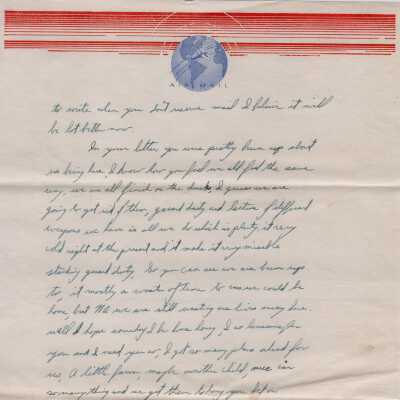 AIR MAIL
to write when you don't receive mail I believe it will
be lot better now.
In your letter you were pretty burn up about
us being here, I know how you feel we all feel the same
way, we are all finish on the docks, I guess we are
going to get rid of them, guard duty and lecture of different
weapons we have is all we do which is plenty, it very
cold right at the present and it make it very miserable
standing guard duty, So you can see we are burn up
to, it mostly a waste of time to us we could be
home, but No we are still wasting our lives away here.
well I hope someday I be home long, I so lonesome for
you and I need you so, I got so many plans ahead for
us, A little farm, maybe another child, 
so many things and we got them to long you